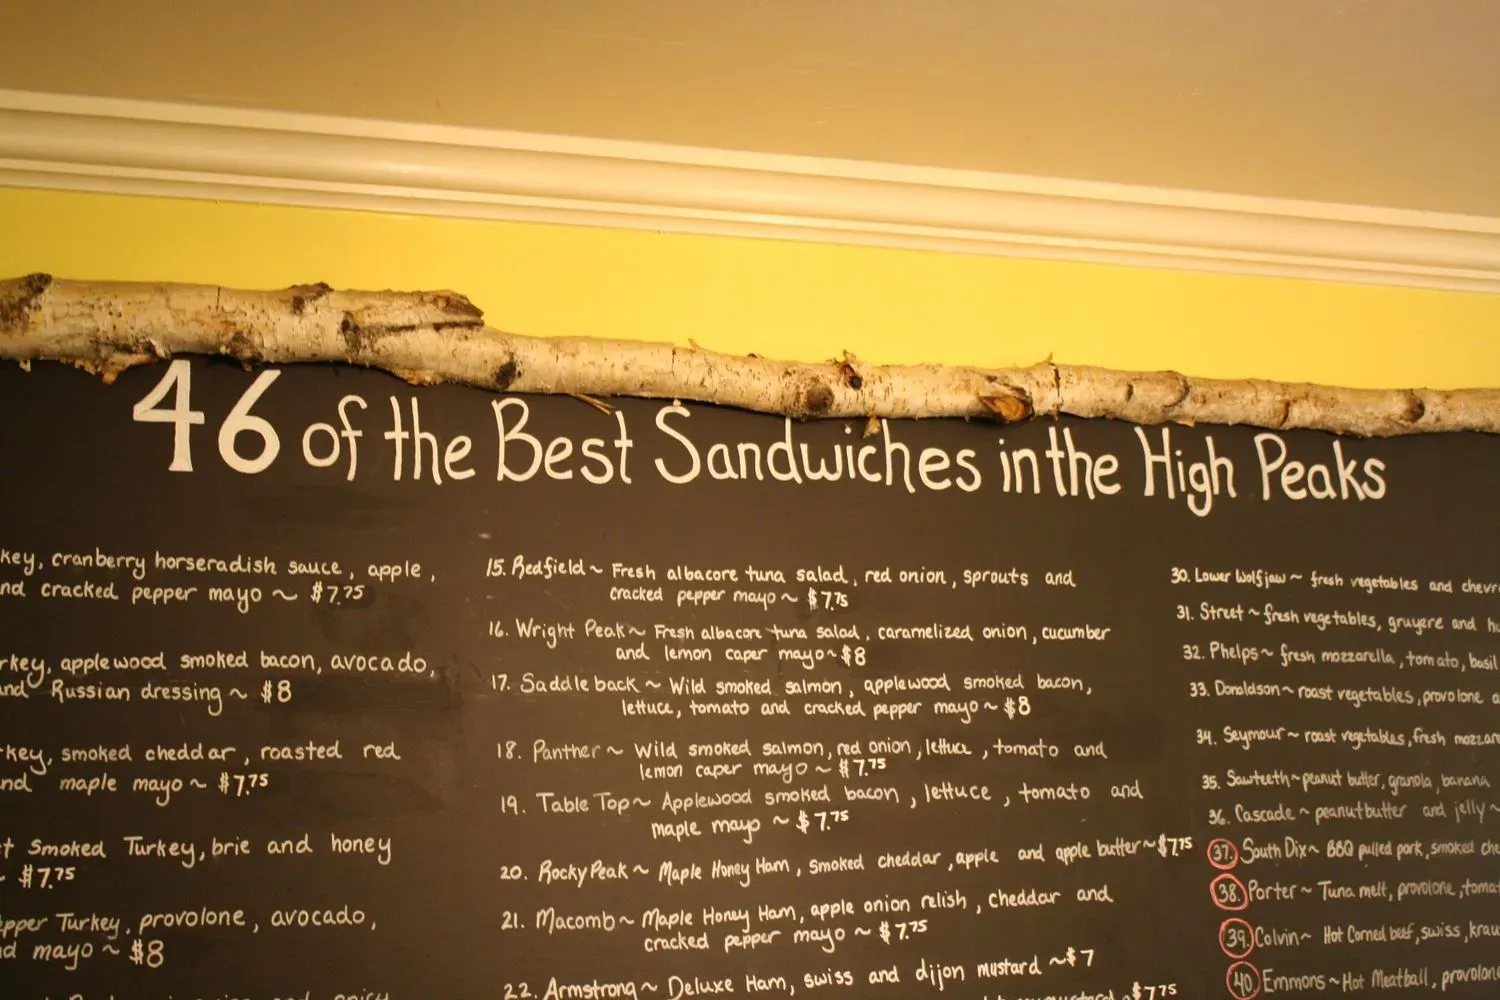 46 of the Best Sandwiches in the High Peaks
key, cranberry horseradish sauce, apple,
nd cracked pepper mayo ~ $7.75
rkey, applewood smoked bacon, avocado,
and Russian dressing ~ $8
key, smoked cheddar, roasted red
nd maple mayo ~ $7.75
t Smoked Turkey, brie and honey
~ $7.75
epper Turkey, provolone, avocado,
d mayo ~ $8
15. Redfield ~ Fresh albacore tuna salad, red onion, sprouts and
cracked pepper mayo ~ $7.75
16. Wright Peak ~ Fresh albacore tuna salad, caramelized onion, cucumber
and lemon caper mayo ~ $8
17. Saddleback ~ Wild smoked salmon, applewood smoked bacon,
lettuce, tomato and cracked pepper mayo ~ $8
18. Panther ~ Wild smoked salmon, red onion, lettuce, tomato and
lemon caper mayo ~ $7.75
19. Table Top ~ Applewood smoked bacon, lettuce, tomato and
maple mayo ~ $7.75
20. Rocky Peak ~ Maple Honey Ham, smoked cheddar, apple and apple butter ~ $7.75
21. Macomb ~ Maple Honey Ham, apple onion relish, cheddar and
cracked pepper mayo ~ $7.75
22. Armstrong ~ Deluxe Ham, swiss and dijon mustard ~ $7
$7.75
30. Lower Wolfjaw ~ fresh vegetables and chevre
31. Street ~ fresh vegetables, gruyere and hu
32. Phelps ~ fresh mozzarella, tomato, basil
33. Donaldson ~ roast vegetables, provolone a
34. Seymour ~ roast vegetables, fresh mozzare
35. Sawteeth ~ peanut butter, granola, banana
36. Cascade ~ peanut butter and jelly ~
37. South Dix ~ BBQ pulled pork, smoked che
38. Porter ~ Tuna melt, provolone, tomat
39. Colvin ~ Hot Corned beef, swiss, krau
40. Emmons ~ Hot Meatball, provolone